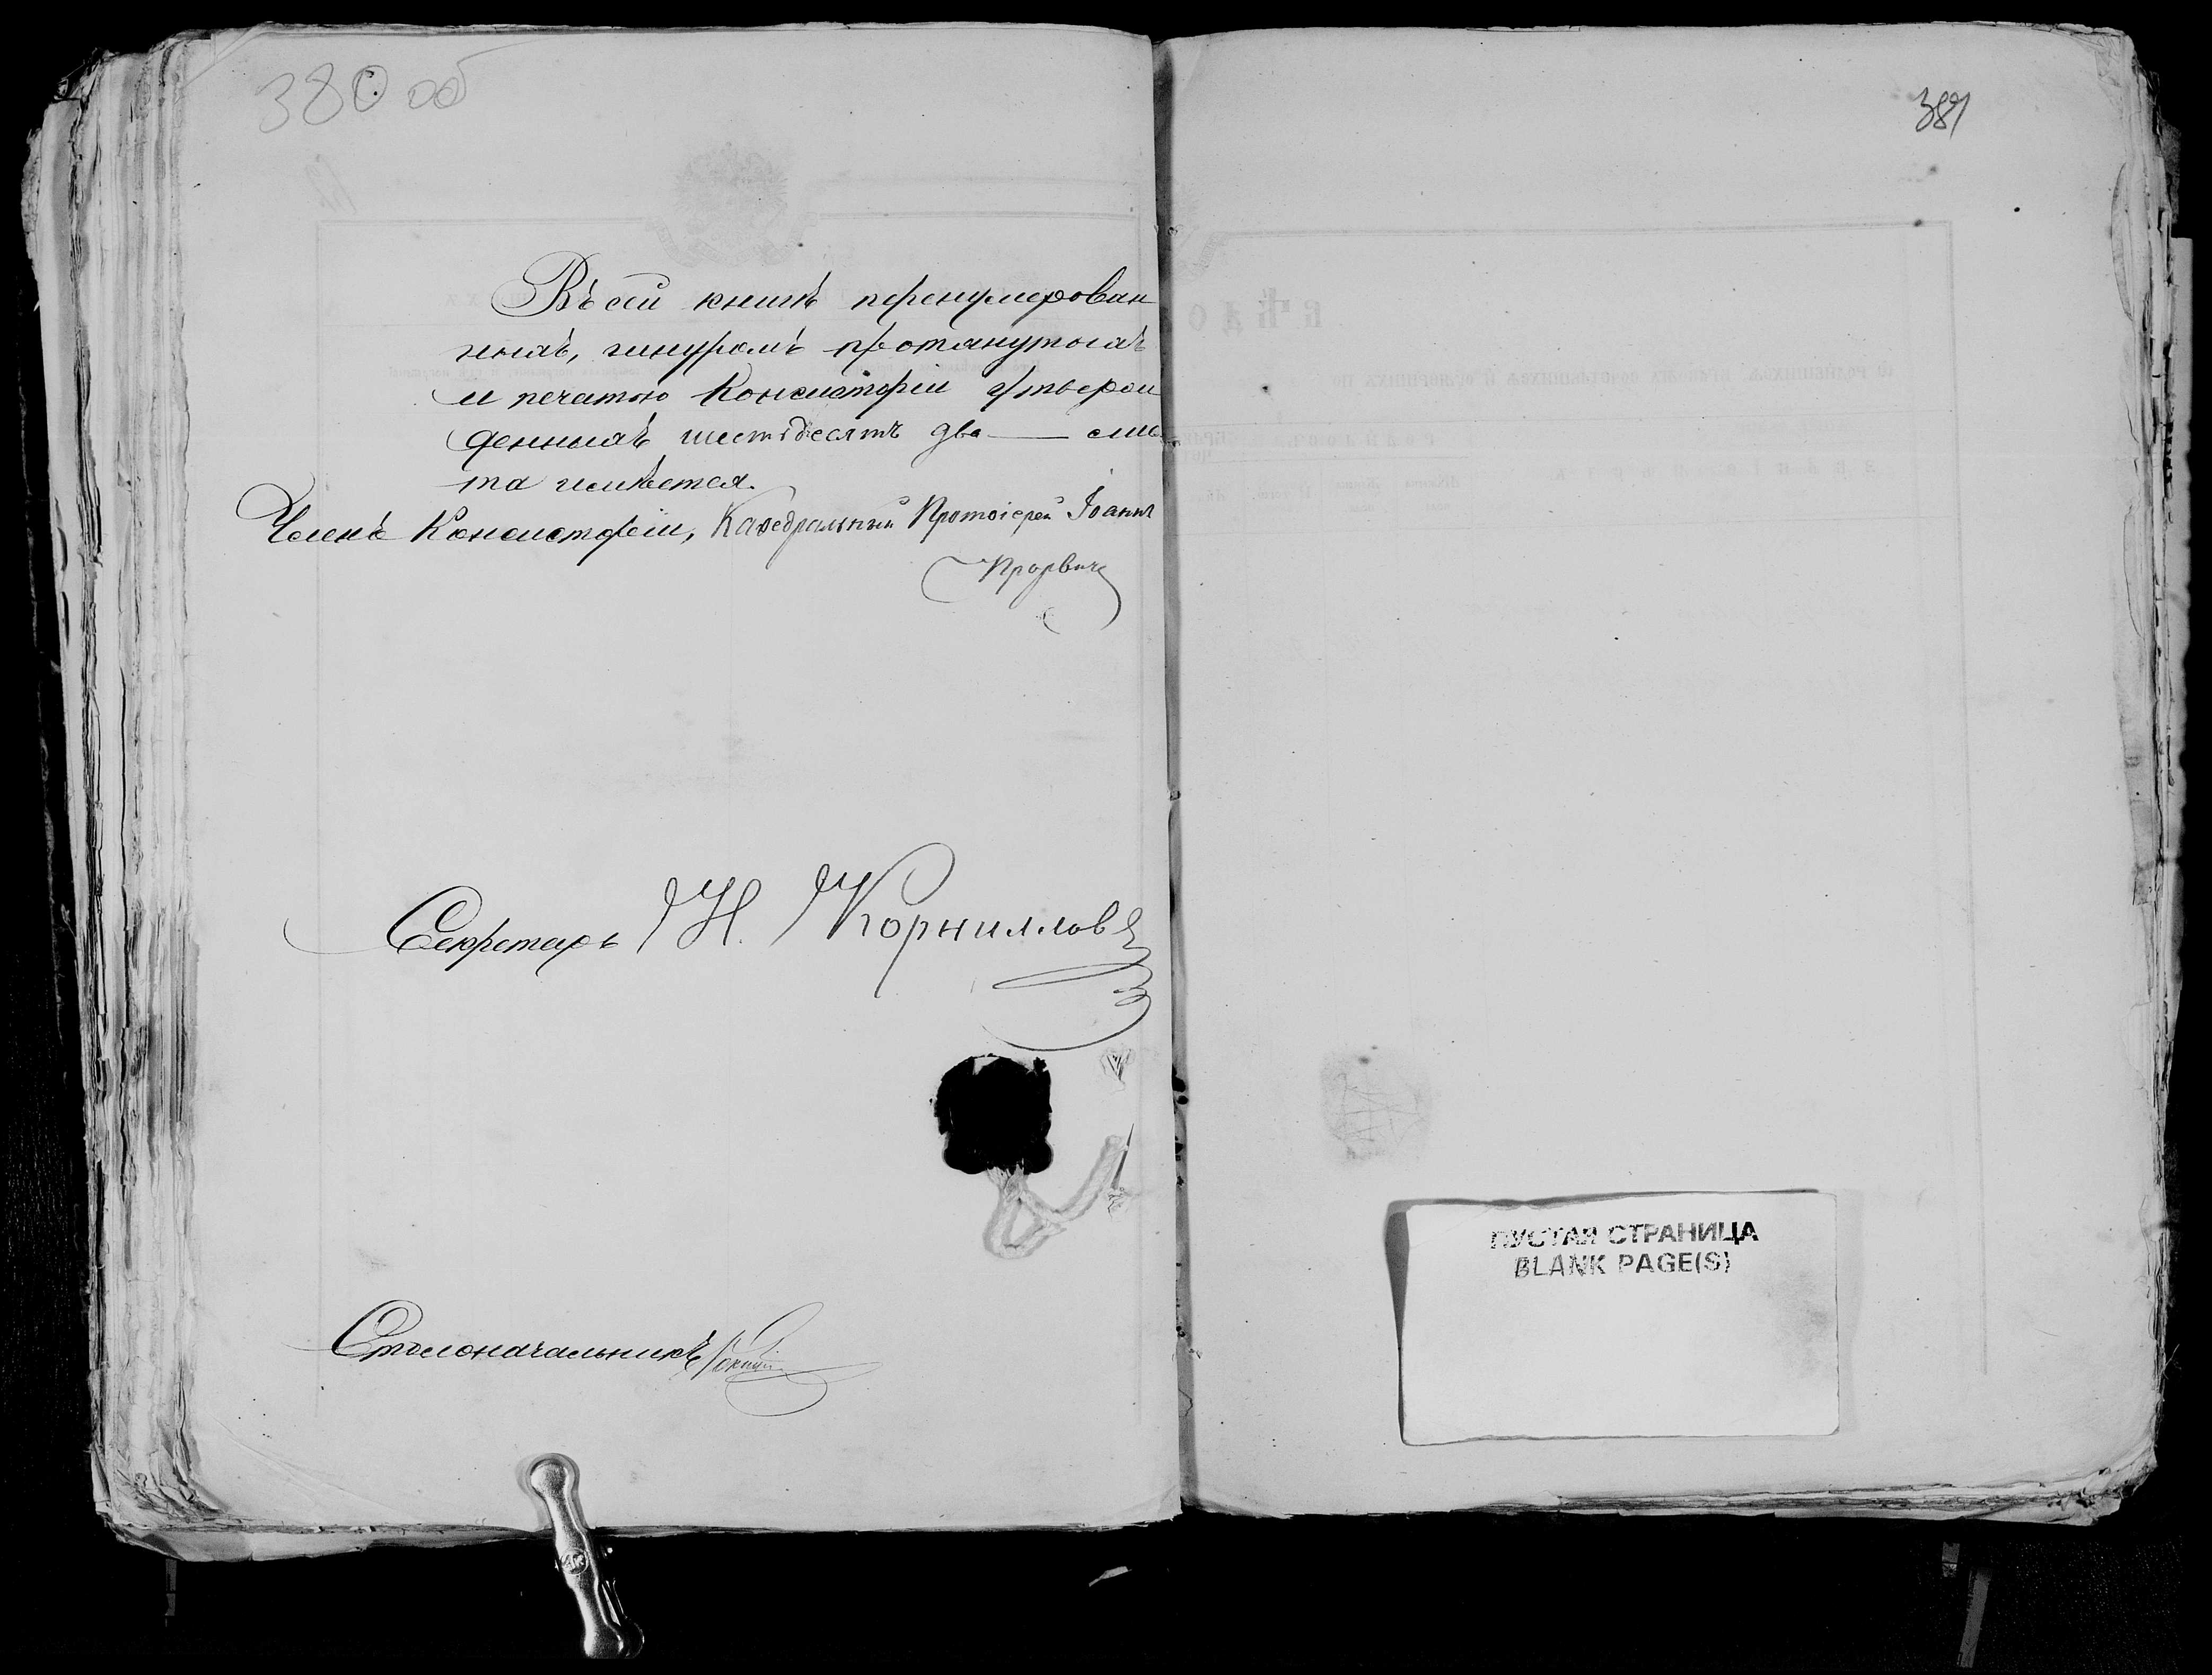 380 об
Въ сей книгѣ перенумерован
ныхъ, шнуромъ протянутыхъ
и печатью Консисторіи утверж
денныхъ шестьдесятъ два — лис
та имѣется.
Членъ Консисторіи, Каѳедральный Протоіерей Іоаннъ
Секретарь Н. Корниловъ
Столоначальникъ
381
ПУСТАЯ СТРАНИЦА
BLANK PAGE(S)